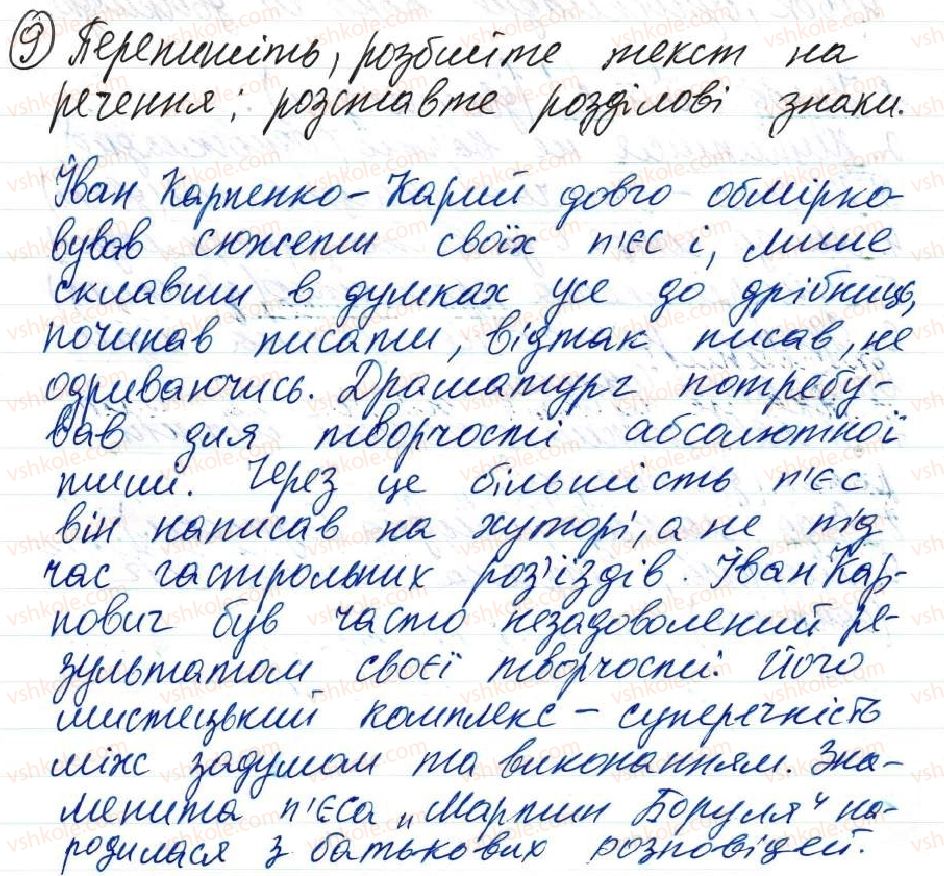 9 Перепишіть, розбийте текст на
речення; розставте розділові знаки.
Іван Карпенко-Карий довго обмірко-
вував сюжети своїх п'єс і, лише
склавши в думках усе до дрібниць,
починав писати, відтак писав, не
одриваючись. Драматург потребу-
вав для творчості абсолютної
тиші. Через це більшість п'єс
він написав на хуторі, а не під
час гастрольних роз'їздів. Іван Кар-
пович був часто незадоволений ре-
зультатом своєї творчості. Його
мистецький комплекс - суперечність
між задумом та виконанням. Зна-
менита п'єса „Мартин Боруля" на-
родилася з батькових розповідей.